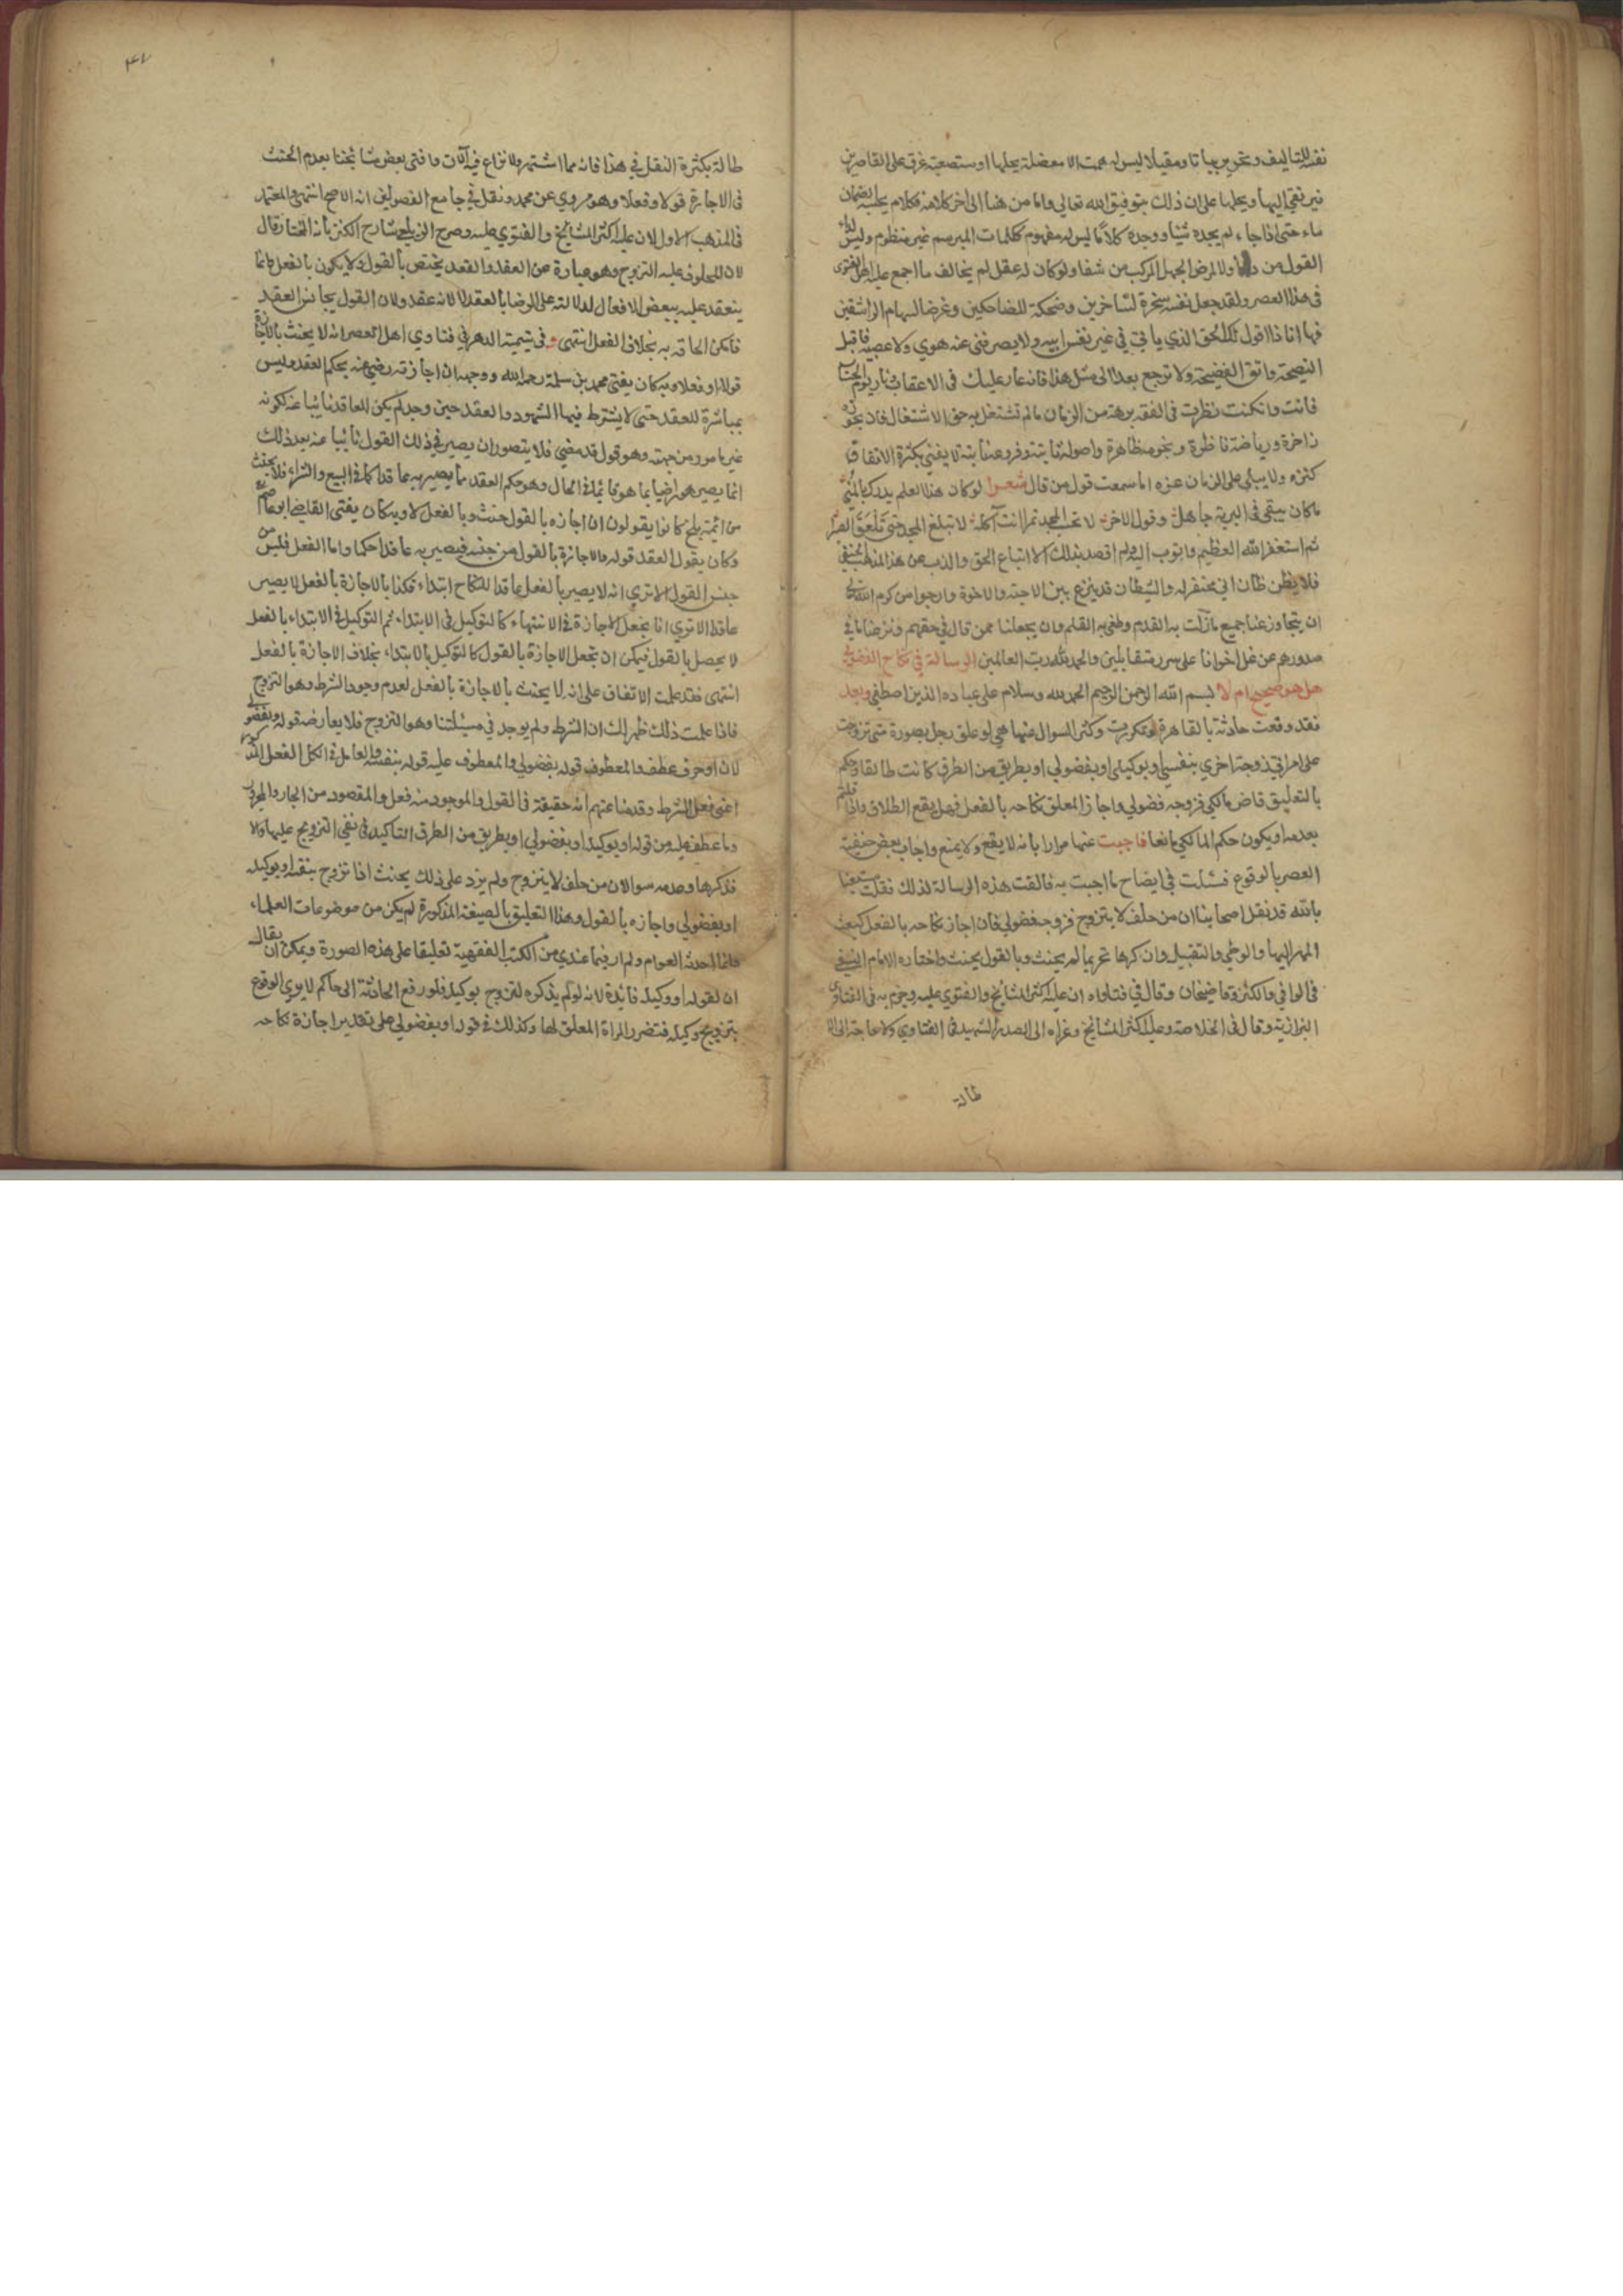 نفسه للتاليف وتحرير بياتا ومقيلا ليس له همت الا معضلة يحلها او مستصعبة غرق على القاصرين
فيرتقي اليها ويحلها على ان ذلك بتوفيق الله تعالى واما من هنا الى اخر كلامه فكلام يحسبه الظمان
ماء حتى اذا جاء لم يجده شيئا ووجده كلاما ليس له مفهوم ككلمات المبرسم غير منظوم وليس لهذا
القول من دواء ولا لمرض الجهل المركب من شفا ولو كان له عقل لم يخالف ما اجمع عليه اهل الفتوى
في هذا العصر ولقد جعل نفسه سخرة للساخرين وضحكة للضاحكين وغرضا لسهام الراشقين
فها انا ذا اقول لك الحق الذي يأتي في غير نفس ابيه ولا يصرفني عنه هوى ولا عصبية فاقبل
النصيحة واتق الفضيحة ولا ترجع بعدا الى مثل هذا فانه عار عليك في الاعقاب نار يوم الحساب
فانت وان كنت نظرت في الفقه برهة من الزمان ما لم تشتغل به حق الاشتغال فلا نه بحور
زاخرة ورياضه ناظرة ونجومه ظاهرة واصوله ثابتة وفروعه نابتة لا يفنى بكثرة الانفاق
كنزه ولا يبلى على الزمان عزه اما سمعت قول من قال شعرا لو كان هذا العلم يدرك بالمنى
ما كان يبقى في البرية جاهل وقول الاخر لا تحسب المجد تمرا انت آكله لا تبلغ المجد حتى تلعق الصبرا
ثم استغفر الله العظيم واتوب اليه ولم اقصد بذلك الا اتباع الحق والذب عن هذا المذهب الحنفي
فلا يظن ظان اني محتقر له والشيطان قد ينزع بين الاحبة والاخوة وارجوا من كرم الله تعالى
ان يتجاوز عنا جميع ما زلت به القدم وطغى به القلم وان يجعلنا ممن قال في حقهم ونزعنا ما في
صدورهم من غل اخوانا على سرر متقابلين والحمد لله رب العالمين الرسالة في نكاح الفضولي
هل هو صحيح ام لا بسم الله الرحمن الرحيم الحمد لله وسلام على عباده الذين اصطفى وبعد
فقد وقعت حادثة بالقاهرة وتكررت وكثر السوال عنها هي لو علق رجل بصورة متى تزوجت
على امراتي زوجة اخرى بنفسي او بوكيلي او بفضولي او بطريق من الطرق كانت طالقا وحكم
بالتعليق قاض مالكي فزوجه فضولي واجاز المعلق نكاحه بالفعل فهل يقع الطلاق واذا قلتم
بعدمه او يكون حكم المالكي مانعا فاجبت عنها مرارا بانه لا يقع ولا يمنع واجاب بعض حنفية
العصر بالوقوع فسئلت في ايضاح ما اجبت به فالفت هذه الرسالة لذلك فقلت مستعينا
بالله قد نقل اصحابنا ان من حلف لا يتزوج فزوجه فضولي فان اجاز نكاحه بالفعل كبعث
المهر اليها والوطي والتقبيل وان كرها تحريما لم يحنث وبالقول يحنث واختاره الامام النسفي
في الوافي والكنز وقاضيخان وقال في فتاواه ان عليه اكثر المشائخ والفتوى عليه وجزم به في الفتاوى
البزازية وقال في الخلاصة وعليه اكثر المشائخ وعزاه الى الصدر الشهيد في الفتاوي ولا حاجة الى الا
طالة
٤٧
طالة بكثرة النقل في هذا فانه مما اشتهر ولا نزاع فيه الان وافتى بعض مشائخنا بعدم الحنث
في الاجازة قولا وفعلا وهو مروي عن محمد ونقل في جامع الفصولين انه الاصح انتهى والمعتمد
في المذهب الاول لان عليه اكثر المشائخ والفتوى عليه وصرح الزيلعي شارح الكنز بانه المختار قال
لان المحلوف عليه التزوج وهو عبارة عن العقد والعقد يختص بالقول ولا يكون بالفعل وانما
ينعقد عليه ببعض الافعال لدلالته على الرضا بالعقد لا لانه عقد ولان القول يجانس العقد
فامكن الحاقه به بخلاف الفعل انتهى وفي يتيمة الدهر في فتاوي اهل العصر انه لا يحنث بالاجازة
قولا او فعلا وبه كان يفتي محمد بن سلمة رحمه الله ووجهه ان اجازته رضي عنه بحكم العقد وليس
بمباشرة للعقد حتى لا يشترط فيها الشهود والعقد حين وجد لم يكن العاقد نائبا عنه لكونه
غير مامور من جهته وهو قول قد مضى فلا يتصور ان يصير في ذلك القول نائبا عنه بعد ذلك
انما يصير هو راضيا بما هو قائما في الحال وهو حكم العقد ما يصير به عاقدا كما في البيع والشراء فلا يحنث
من ائمة بلخ كانوا يقولون ان اجازه بالقول حنث وبالفعل لا وبه كان يفتي القاضي ابو عاصم
وكان يقول العقد قوله والاجازة بالقول من جنسه فيصير به عاقدا حكما واما الفعل فليس من
جنس القول الا ترى انه لا يصير بالفعل عاقدا للنكاح ابتداء فكذا بالاجازة بالفعل لا يصير
عاقدا الا ترى انا نجعل الاجازة في الانتهاء كالتوكيل في الابتداء ثم التوكيل في الابتداء بالفعل
لا يحصل بالقول فيمكن ان تجعل الاجازة بالقول كالتوكيل بالابتداء بخلاف الاجازة بالفعل
انتهى فقد علمت الاتفاق على انه لا يحنث بالاجازة بالفعل لعدم وجود الشرط وهو التزوج
فاذا علمت ذلك ظهر لك ان الشرط ولم يوجد في مسئلتنا وهو التزوج فلا يعارضه قوله وبفضولي
لان او حرف عطف والمعطوف قوله بفضولي والمعطوف عليه قوله بنفسه والعامل في الكل الفعل المذكور
اعني فعل الشرط وقدمنا عنهم انه حقيقة في القول والموجود منه فعل والمقصود من الجار والمجرور
وما عطف عليه من قوله او بوكيله او بفضولي او بطريق من الطرق التاكيد في نفي التزويج عليها والا
فذكرها وعدمه سوا لان من حلف لا يتزوج ولم يزد على ذلك يحنث اذا تزوج بنفسه او بوكيله
او بفضولي واجازه بالقول وهذا التعليق بالصيغة المذكورة لم يكن من موضوعات العلماء
وانما احدثه العوام ولم ار فيما عندي من الكتب الفقهية تعليقا على هذه الصورة ويمكن ان يقال
ان لقوله او وكيله فائدة لانه لو لم يذكره لتزوج بوكيله فلو رفع الحادثة الى حاكم لا يرى الوقوع
بتزويج وكيله فتضرر المراة المعلق لها وكذلك في قوله او بفضولي على تقدير اجازة نكاحه